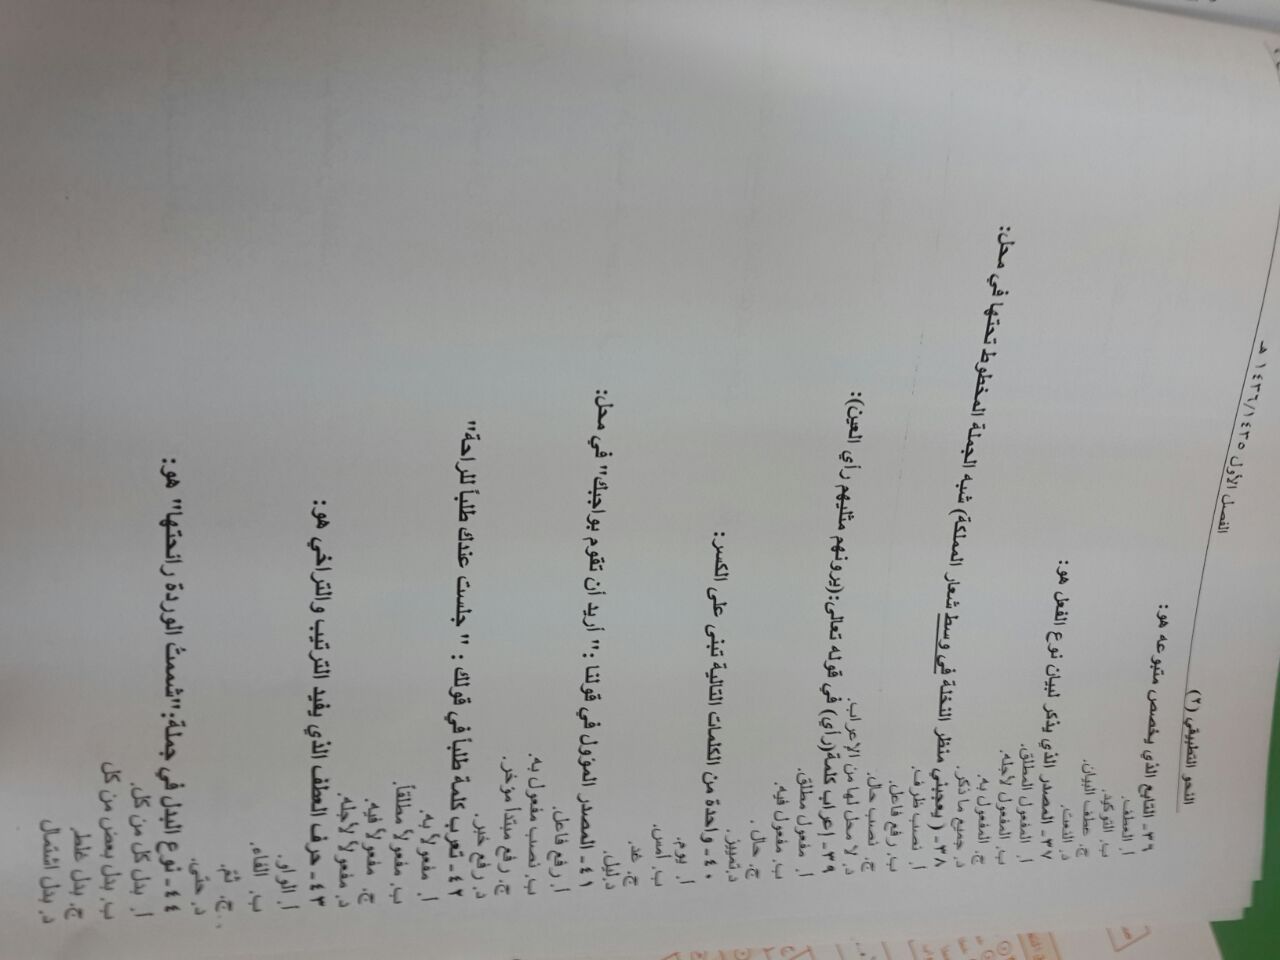 النحو التطبيقي (٢)
الفصل الأول ١٤٣٥/١٤٣٦ هـ
٣٦- التابع الذي يخصص متبوعه هو:
أ. العطف.
ب. التوكيد.
ج. عطف البيان.
د. النعت.
٣٧- المصدر الذي يذكر لبيان نوع الفعل هو:
أ. المفعول المطلق.
ب. المفعول لأجله.
ج. المفعول به.
د. جميع ما ذكر.
٣٨- ( يعجبني منظر النخلة في وسط شعار المملكة) شبه الجملة المخطوط تحتها في محل:
أ. نصب ظرف.
ب. رفع فاعل.
ج. نصب حال.
د. لا محل لها من الإعراب.
٣٩- إعراب كلمة(رأي) في قوله تعالى:(يرونهم مثليهم رأي العين):
أ. مفعول مطلق.
ب. مفعول فيه.
ج. حال.
د. تمييز.
٤٠- واحدة من الكلمات التالية تبنى على الكسر:
أ. يوم.
ب. أمس.
ج. غد.
د. ليل.
٤١- المصدر المؤول في قولنا :" أريد أن تقوم بواجبك" في محل:
أ. رفع فاعل.
ب. نصب مفعول به.
ج. رفع مبتدأ مؤخر.
د. رفع خبر.
٤٢- تعرب كلمة طلباً في قولك : " جلست عندك طلباً للراحة"
أ. مفعولاً به.
ب. مفعولاً مطلقاً.
ج. مفعولاً فيه.
د. مفعولاً لأجله.
٤٣- حرف العطف الذي يفيد الترتيب والتراخي هو:
أ. الواو.
ب. الفاء.
ج. ثم.
د. حتى.
٤٤- نوع البدل في جملة:"شممت الوردة رائحتها" هو:
أ. بدل كل من كل.
ب. بدل بعض من كل
ج. بدل غلط
د. بدل اشتمال